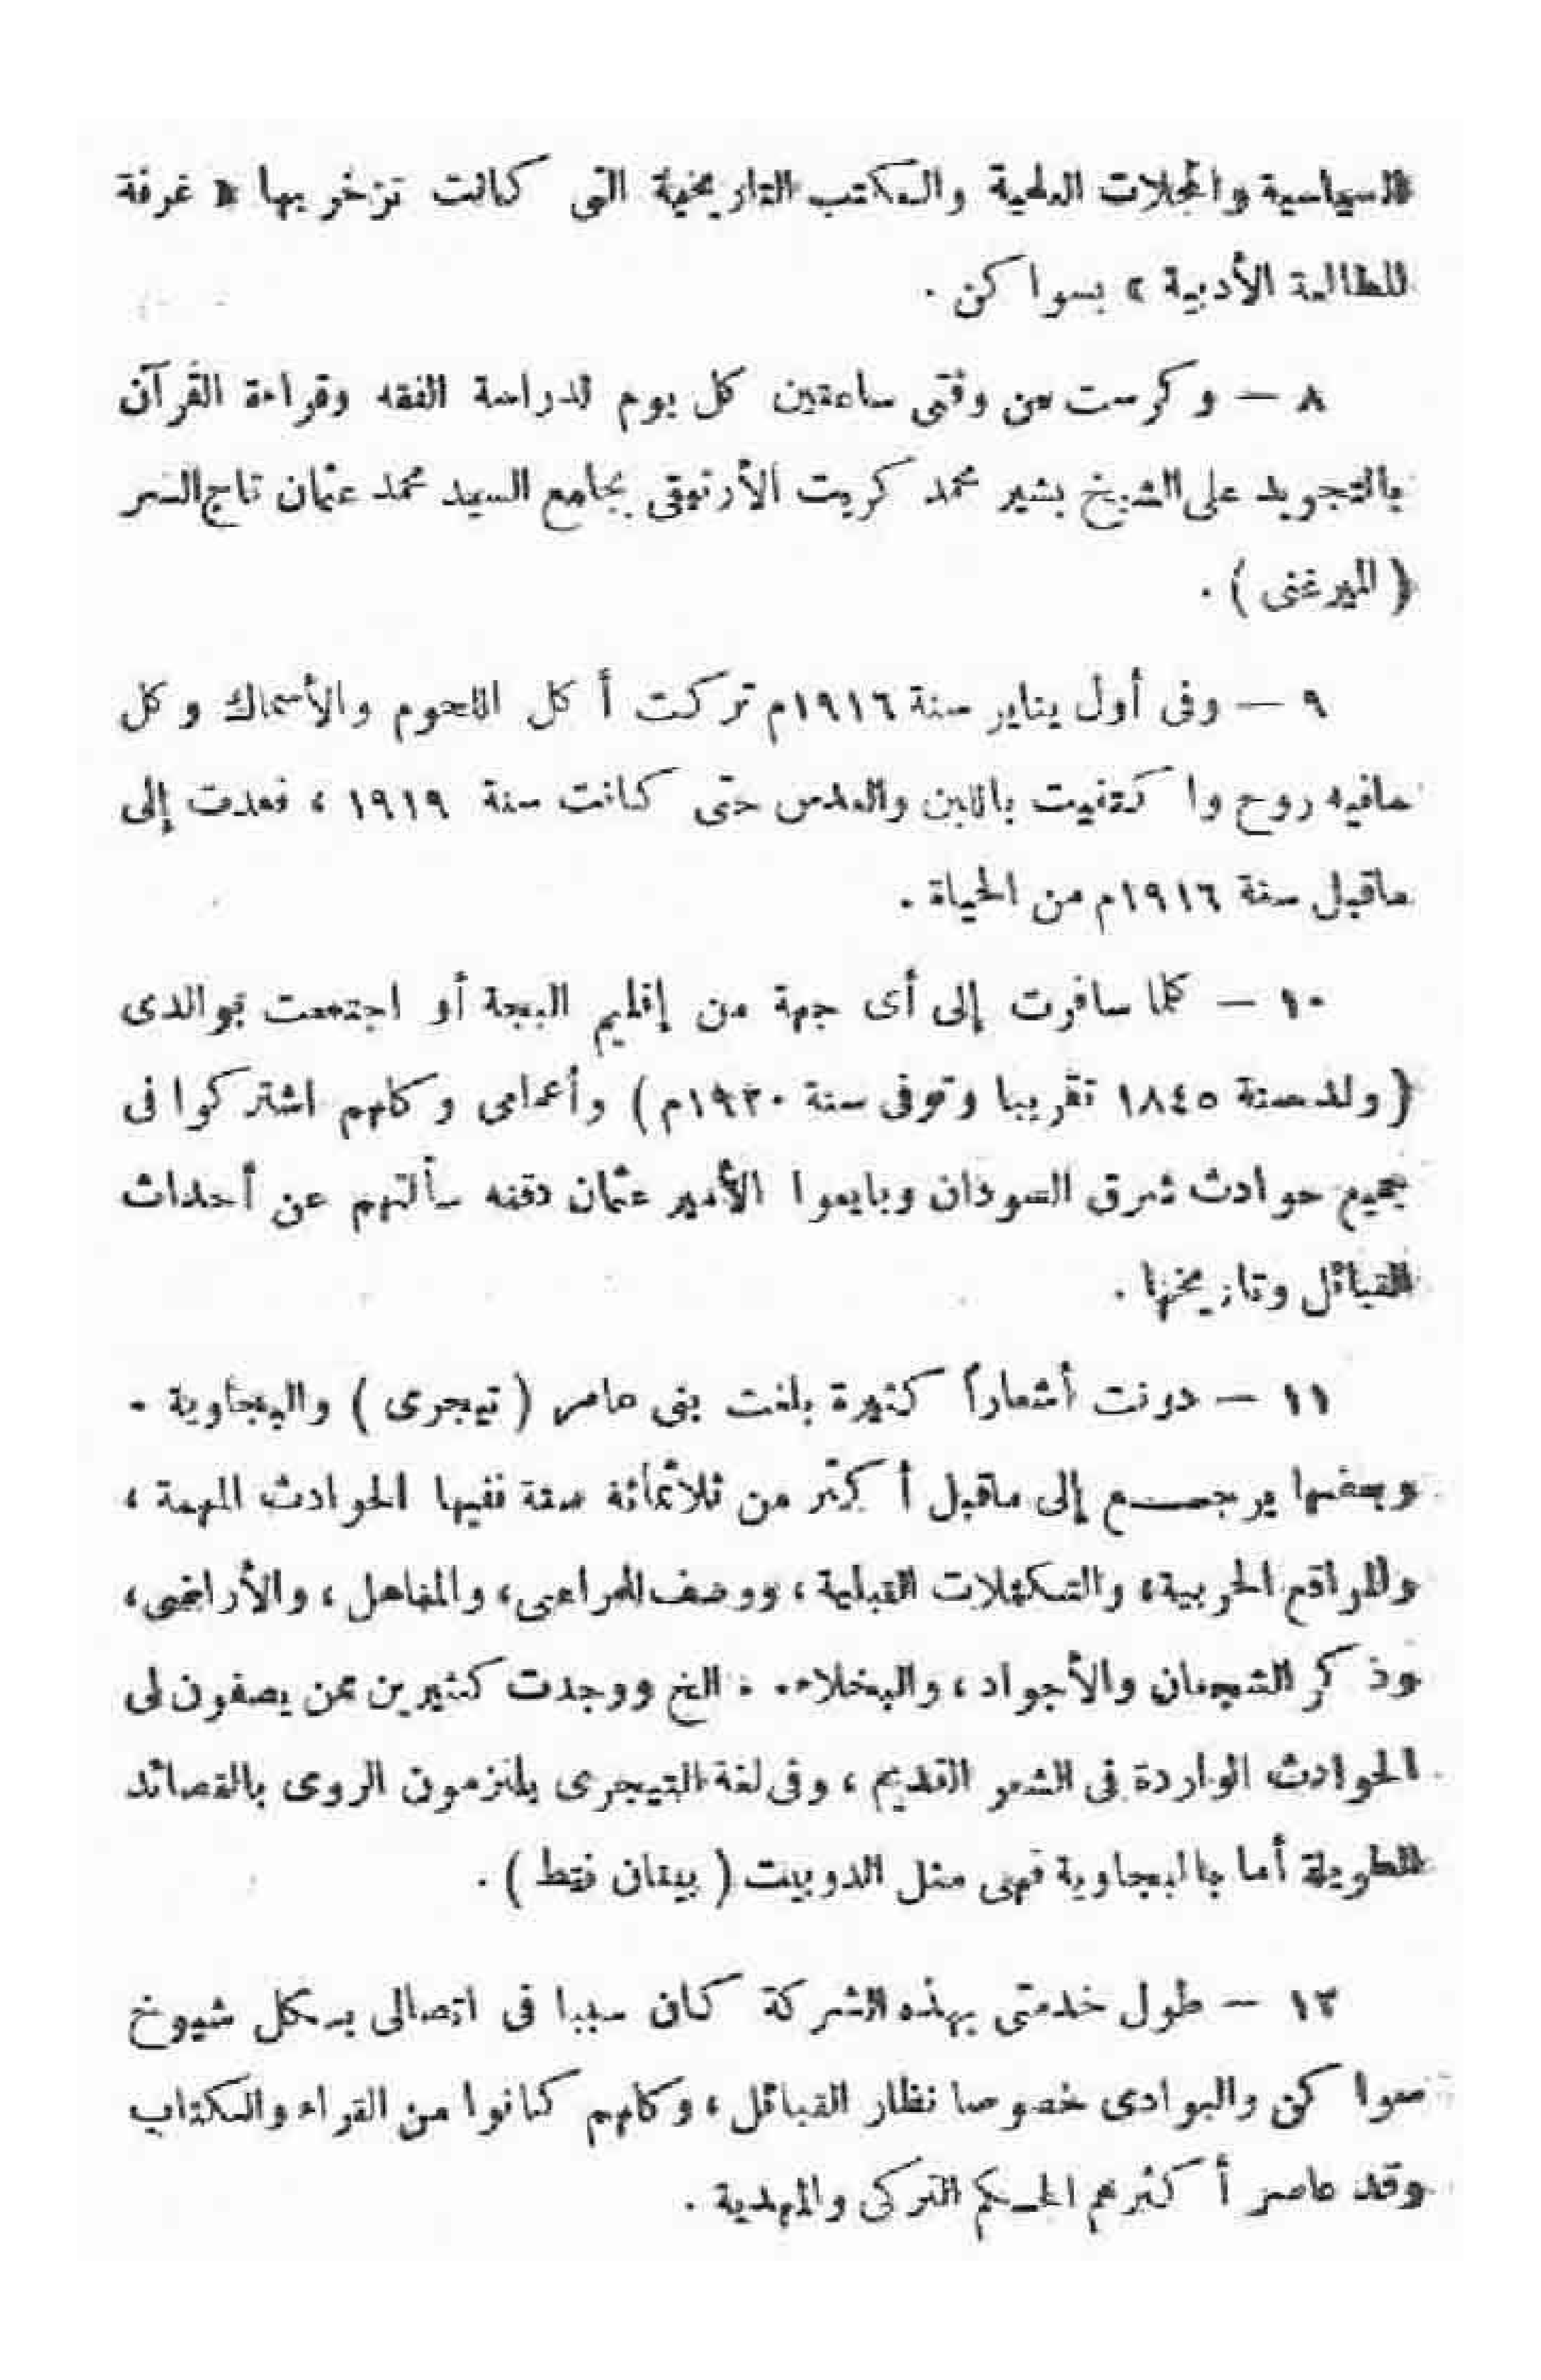 السياسية والمجلات العلمية والكتب التاريخية التى كانت تزخر بها « غرفة
المطالعة الأدبية » بسواكن .
٨ — وكرست من وقتى ساعتين كل يوم لدراسة الفقه وقراءة القرآن
بالتجويد على الشيخ بشير محمد كريت الأرتيقى بجامع السيد محمد عثمان تاج السر
( الميرغنى ) .
٩ — وفى أول يناير سنة ١٩١٦م تركت أكل اللحوم والأسماك وكل
مافيه روح واكتفيت باللبن والعدس حتى كانت سنة ١٩١٩ ، فعدت إلى
ماقبل سنة ١٩١٦م من الحياة .
١٠ — كلما سافرت إلى أى جهة من إقليم البجة أو اجتمعت بوالدى
( ولد سنة ١٨٤٥ تقريبا وتوفى سنة ١٩٣٠م ) وأعمامى وكلهم اشتركوا فى
جميع حوادث شرق السودان وبايعوا الأمير عثمان دقنه سألتهم عن أحداث
القبائل وتاريخها .
١١ — دونت أشعاراً كثيرة بلغت بنى عامر ( تيجرى ) والبجاوية .
وبعضها يرجــع إلى ماقبل أكثر من ثلاثمائة سنة ففيها الحوادث المهمة ،
والمواقع الحربية ، والتكتلات القبلية ، ووصف المراعى ، والمناهل ، والأراضى ،
وذكر الشجعان والأجواد ، والبخلاء . . الخ ووجدت كثيرين ممن يصفون لى
الحوادث الواردة فى الشعر القديم ، وفى لغة التيجرى يلتزمون الروى بالقصائد
الطويلة أما بالبجاوية فهى مثل الدوبيت ( بيتان فقط ) .
١٢ — طول خدمتى بهذه الشركة كان سببا فى اتصالى بكل شيوخ
سواكن والبوادى خصوصا نظار القبائل ، وكلهم كانوا من القراء والكتاب
وقد عاصر أكثرهم الحـكم التركى والمهدية .